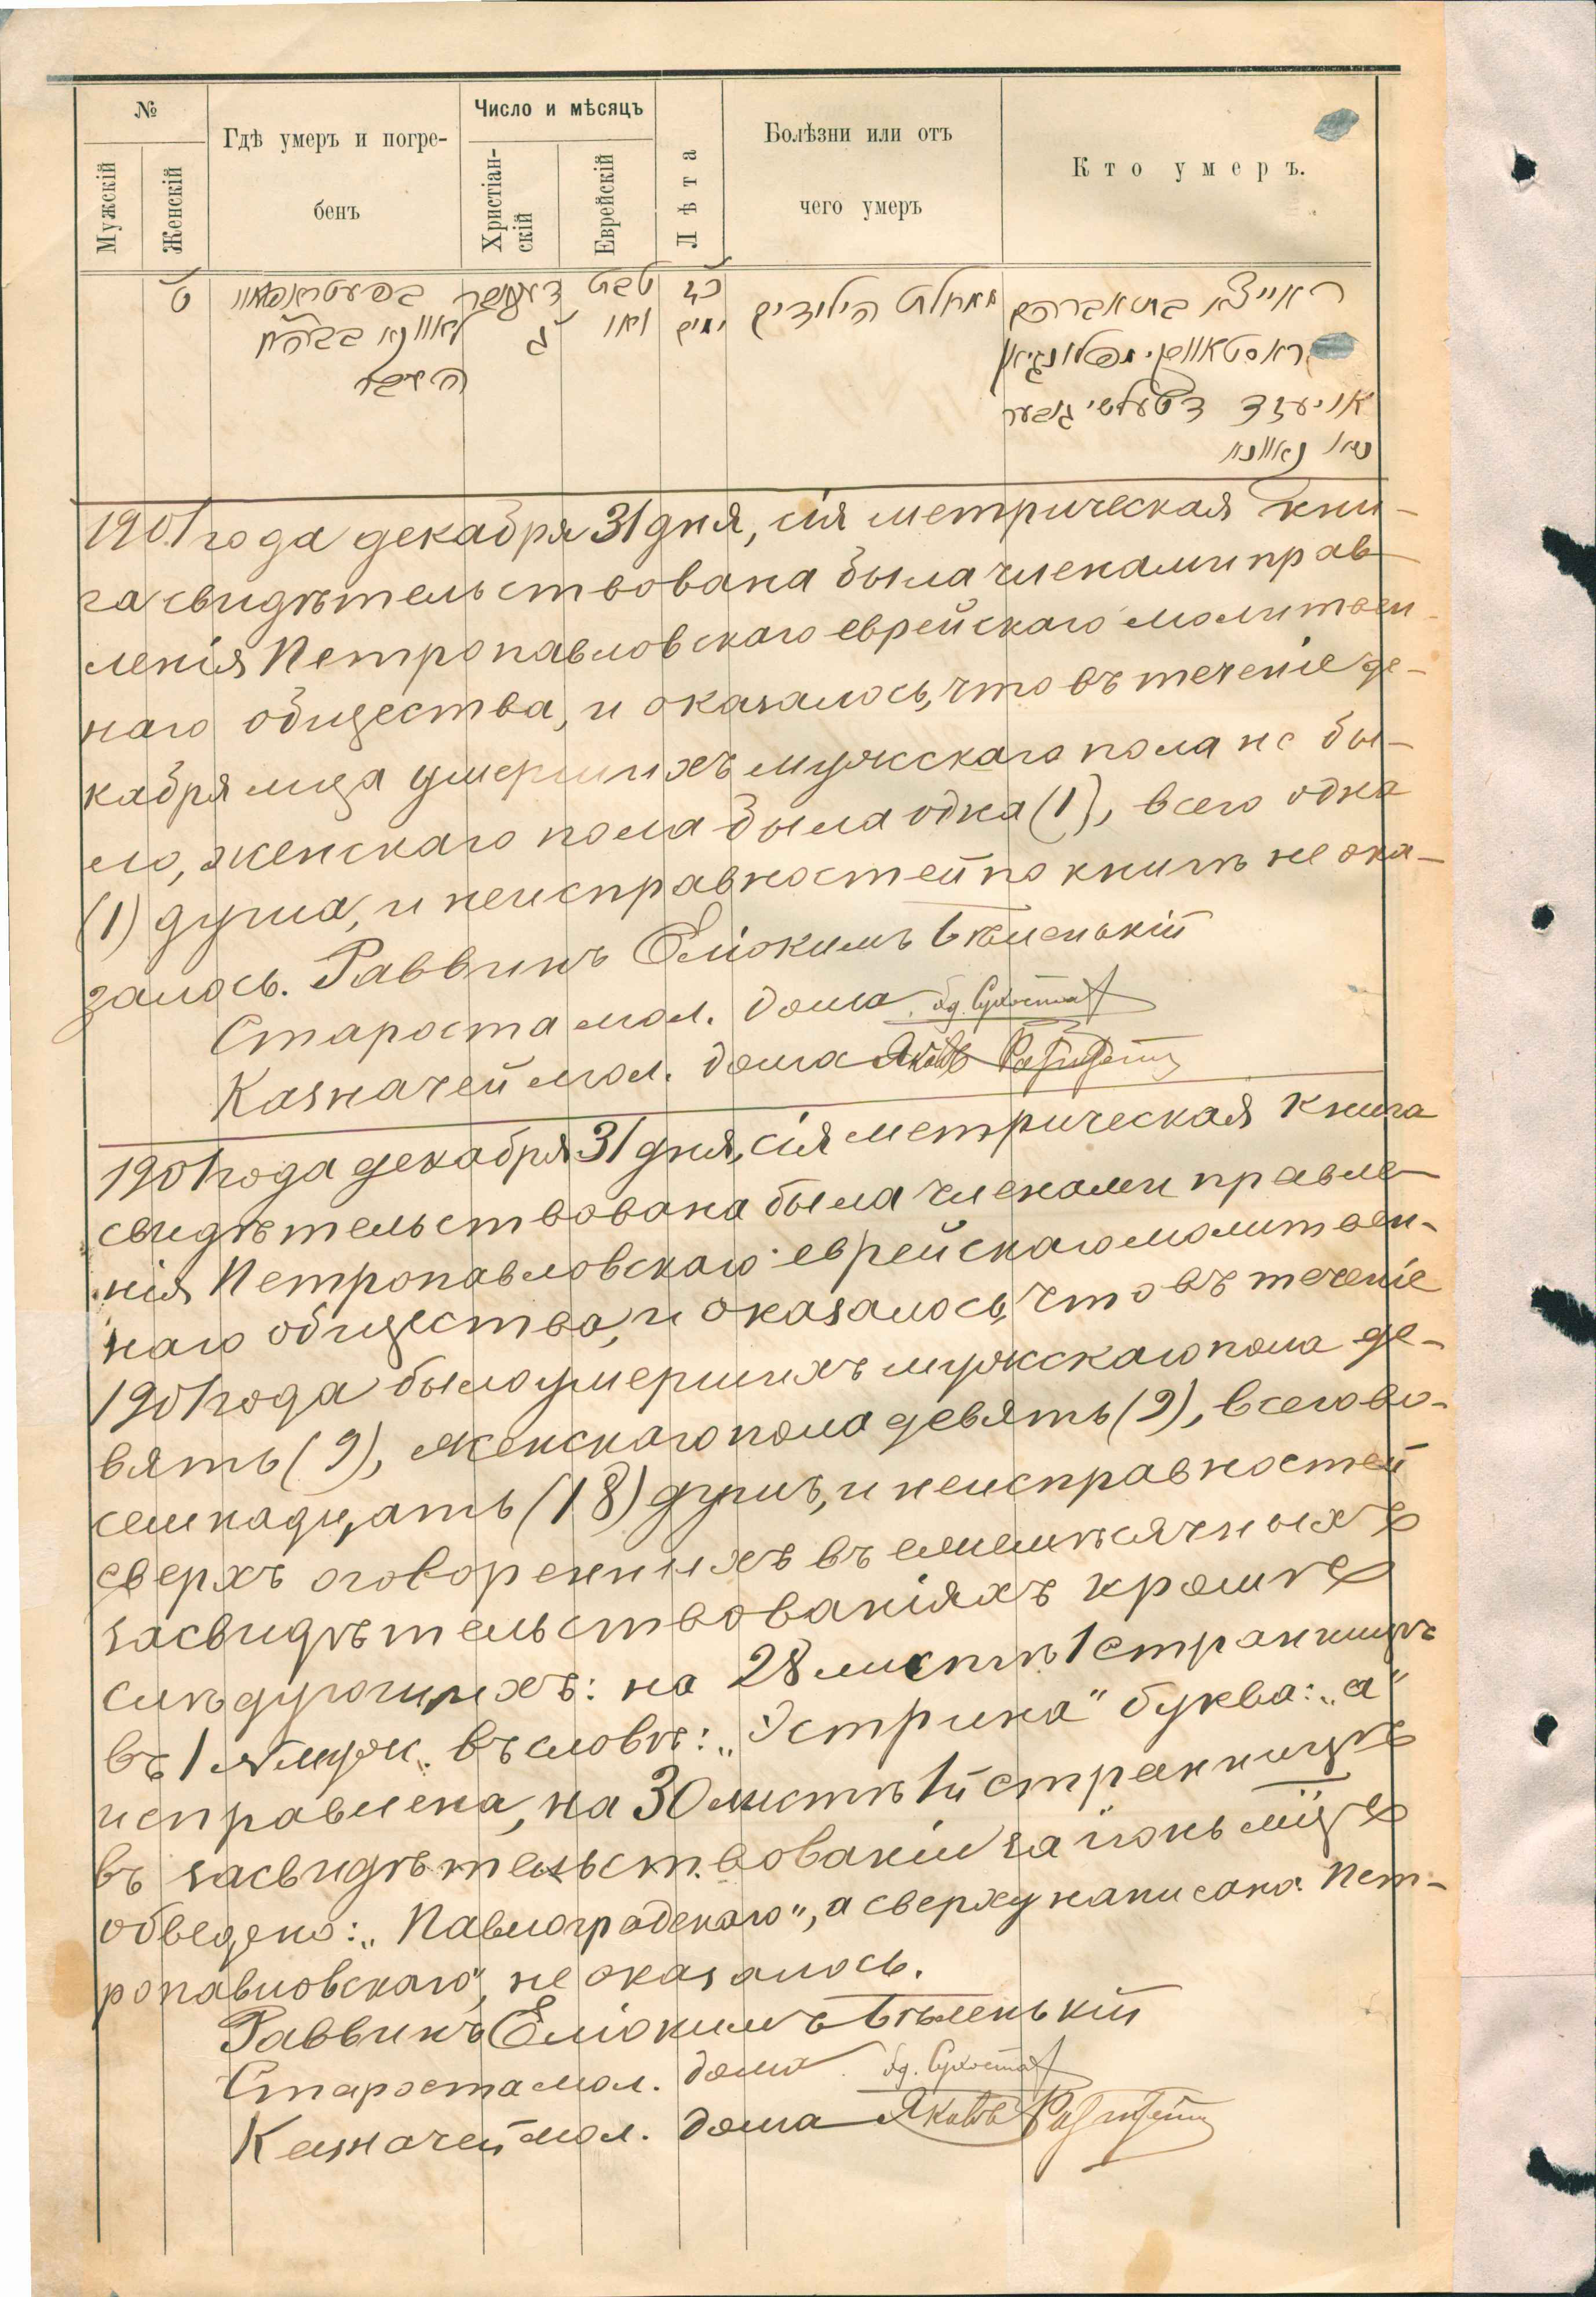 №
Мужскій
Женскій
Гдѣ умеръ и погре-
бенъ
Число и мѣсяцъ
Христіан-
скій
Еврейскій
Лѣта
Болѣзни или отъ
чего умеръ
Кто умеръ.
ט
טבת
כד
ימים
ואו
מחלת הילודים
1901 года декабря 31 дня, сія метрическая кни-
га свидѣтельствована была членами прав-
ленія Петропавловскаго еврейскаго молитвен-
наго общества, и оказалось, что въ теченіе де-
кабря мца умершихъ мужскаго пола не бы-
ло, женскаго пола была одна (1), всего одна
(1) душа, и неисправностей по книгѣ не ока-
залось. Раввинъ Еліокимъ Бѣленькій
Староста мол. дома
Казначей мол. дома Яковъ
1901 года декабря 31 дня, сія метрическая книга
свидѣтельствована была членами правле-
нія Петропавловскаго еврейскаго молитвен-
наго общества, и оказалось, что въ теченіе
1901 года было умершихъ мужскаго пола де-
вять (9), женскаго пола девять (9), всего во-
семнадцать (18) душъ, и неисправностей
сверхъ оговоренныхъ въ ежемѣсячныхъ
засвидѣтельствованіяхъ кромѣ
слѣдующихъ: на 28 листѣ 1 страницѣ
въ 1 № муж. въ словѣ: „Эстрина" буква: „а"
исправлена, на 30 листѣ 1й страницѣ
въ засвидѣтельствованіи за іюнь мцѣ
обведено: „Павлоградскаго", а сверху написано Пет-
ропавловскаго", не оказалось.
Раввинъ Еліокимъ Бѣленькій
Староста мол. дома
Казначей мол. дома Яковъ